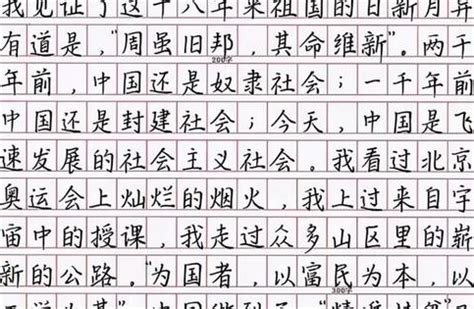 我见证了这十八年来祖国的日新月异
有道是，“周虽旧邦，其命维新”。两千
200字
年前，中国还是奴隶社会；一千年前
中国还是封建社会；今天，中国是飞
速发展的社会主义社会。我看过北京
奥运会上灿烂的烟火，我上过来自宇
宙中的授课，我走过众多山区里的崭
新的公路。“为国者，以富民为本，以
300字